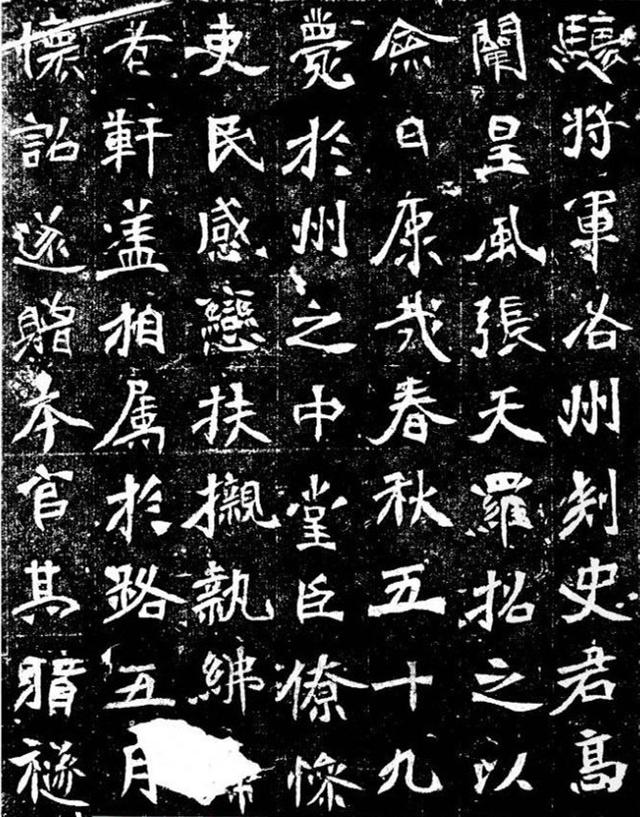 驤將軍洛州刾史君高
闡皇風張天羅招之以
僉曰康哉春秋五十九
薨於州之中堂臣僚慘
吏民感戀扶櫬執紼
巷軒盖相属於路五月
懷詔遂贈夲官其襚